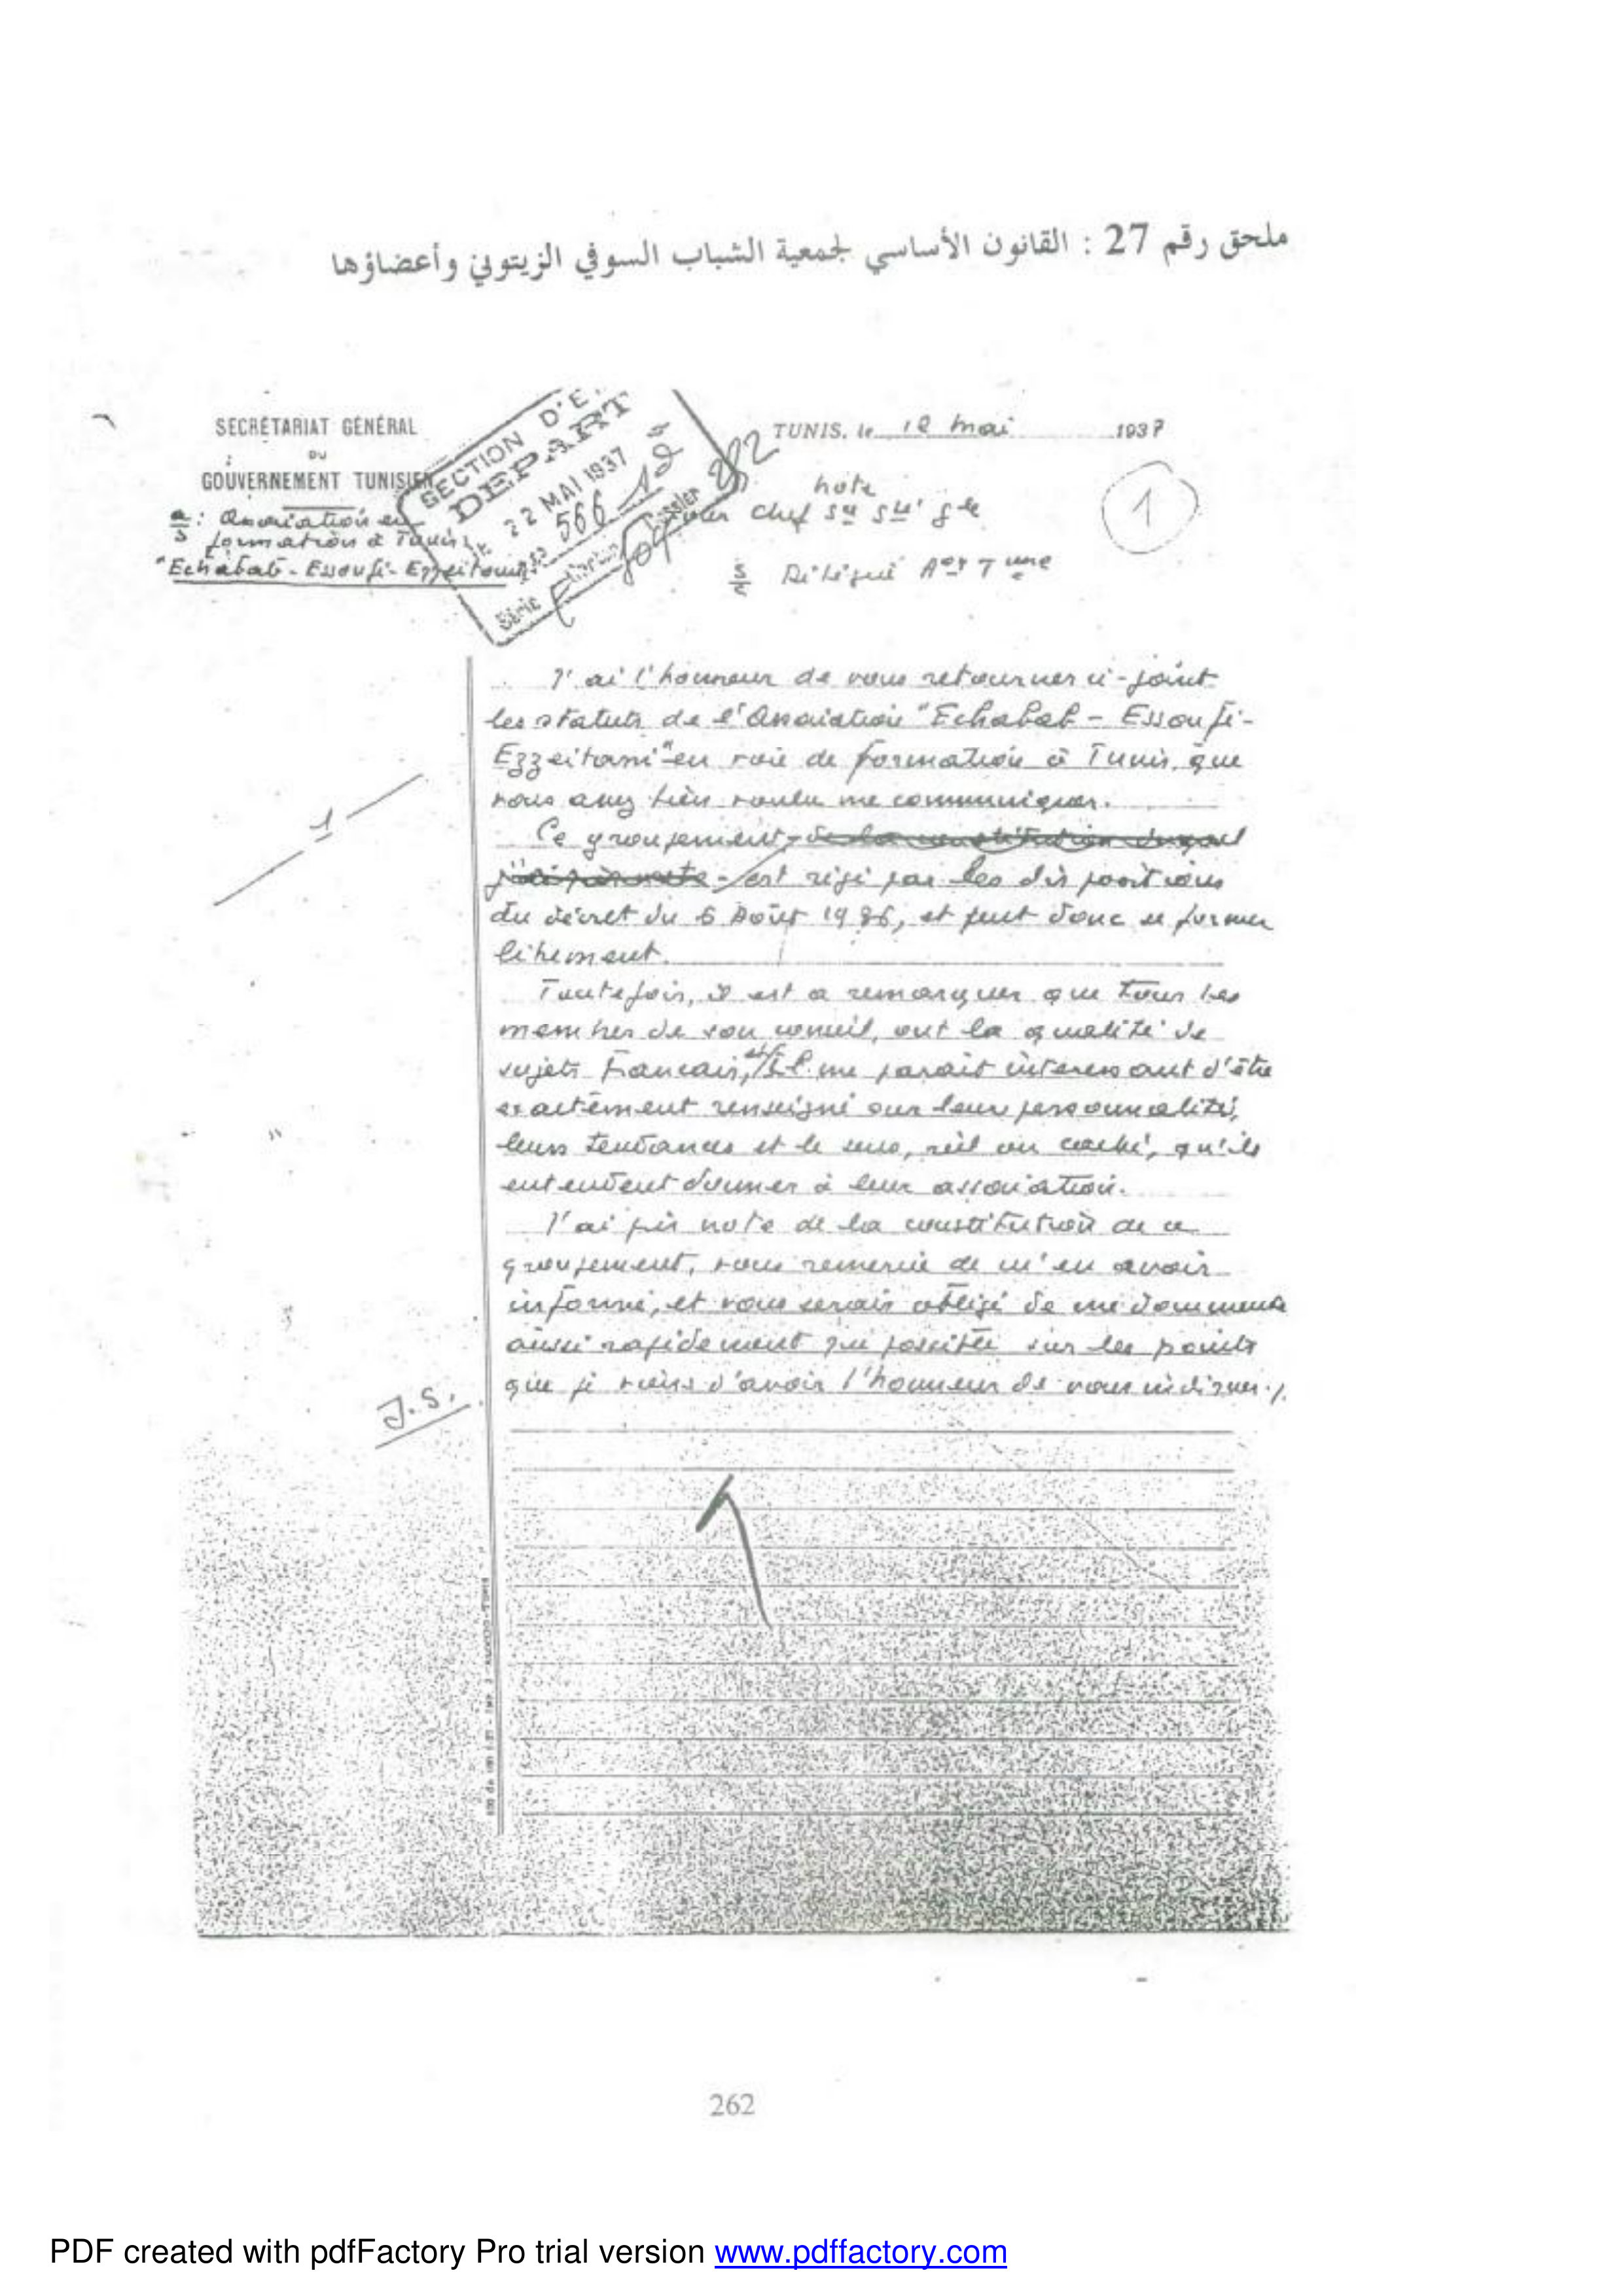 ملحق رقم 27 : القانون الأساسي لجمعية الشباب السوفي الزيتوني وأعضاؤها
SECRÉTARIAT GÉNÉRAL
DU
GOUVERNEMENT TUNISIEN
a/s : Association en
formation à Tunis
"Echabab - Essoufi - Ezzeitouni
SECTION D'E.
DEPART
22 MAI 1937
566
Série
Dossier
TUNIS, le 12 mai 1937
note
pour Chef
1
s/c Délégué
J'ai l'honneur de vous retourner ci-joint
les statuts de l'Association "Echabab - Essoufi-
Ezzeitouni" en voie de formation à Tunis, que
vous avez bien voulu me communiquer.
Ce groupement, de la constitution duquel
j'ai pris note - est régi par les dispositions
du décret du 6 Août 1936, et peut donc se former
librement.
Toutefois, il est à remarquer que tous les
membres de son conseil, ont la qualité de
sujets Français, et il me parait intéressant d'être
exactement renseigné sur leur personnalité,
leurs tendances et le sens, réel ou caché, qu'ils
entendent donner à leur association.
J'ai pris note de la constitution de ce
groupement, vous remercie de m'en avoir
informé, et vous serais obligé de me documenter
aussi rapidement que possible sur les points
que je viens d'avoir l'honneur de vous indiquer./.
1
J.S.
262
PDF created with pdfFactory Pro trial version www.pdffactory.com